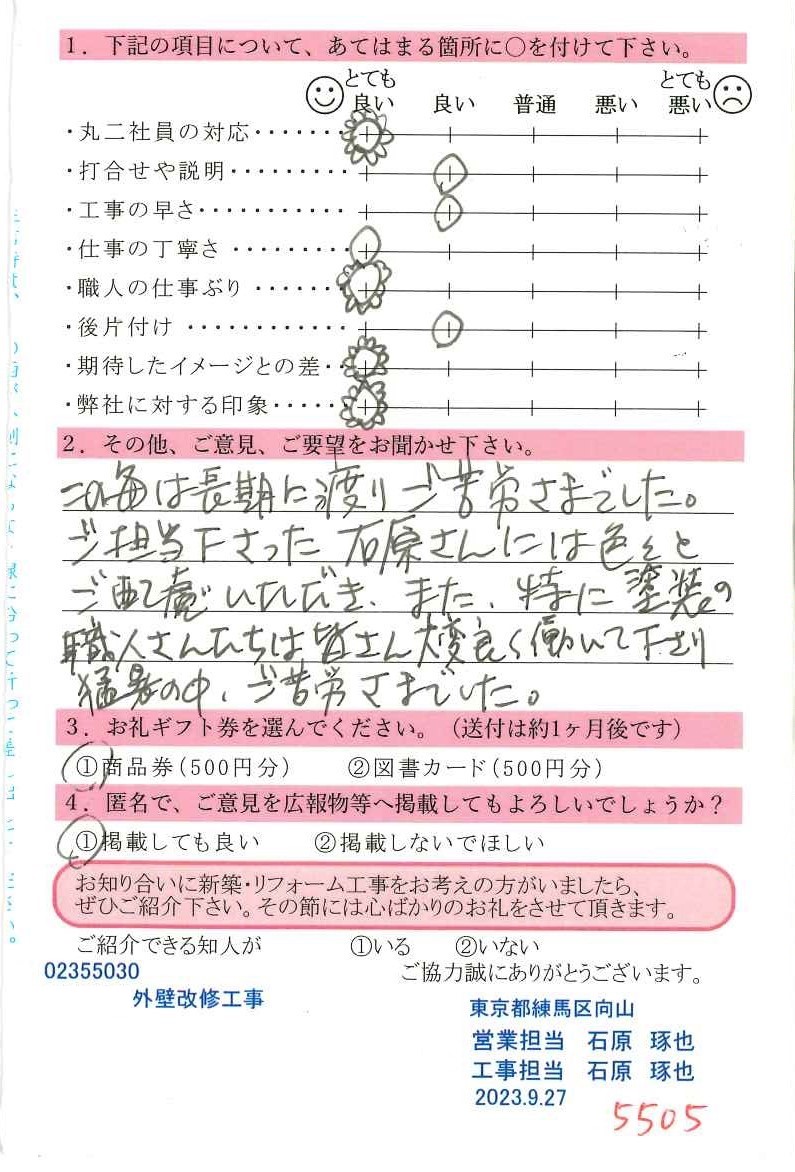 1. 下記の項目について、あてはまる箇所に○を付けて下さい。
とても良い 良い 普通 悪い とても悪い
・丸二社員の対応・・・・・・・
・打合せや説明・・・・・・・・・
・工事の早さ・・・・・・・・・・・
・仕事の丁寧さ・・・・・・・・・
・職人の仕事ぶり・・・・・・・
・後片付け・・・・・・・・・・・・
・期待したイメージとの差・・
・弊社に対する印象・・・・・・
2. その他、ご意見、ご要望をお聞かせ下さい。
この毎は長期に渡りご苦労さまでした。
ご担当下さった石原さんには色々と
ご配慮いただき、また、特に塗装の
職人さんたちは皆さん大変良く働いて下さり
猛暑の中、ご苦労さまでした。
3. お礼ギフト券を選んでください。(送付は約1ヶ月後です)
①商品券(500円分) ②図書カード(500円分)
4. 匿名で、ご意見を広報物等へ掲載してもよろしいでしょうか?
①掲載しても良い ②掲載しないでほしい
お知り合いに新築・リフォーム工事をお考えの方がいましたら、
ぜひご紹介下さい。その節には心ばかりのお礼をさせて頂きます。
ご紹介できる知人が ①いる ②いない
02355030
ご協力誠にありがとうございます。
外壁改修工事
東京都練馬区向山
営業担当 石原 琢也
工事担当 石原 琢也
2023.9.27
5505